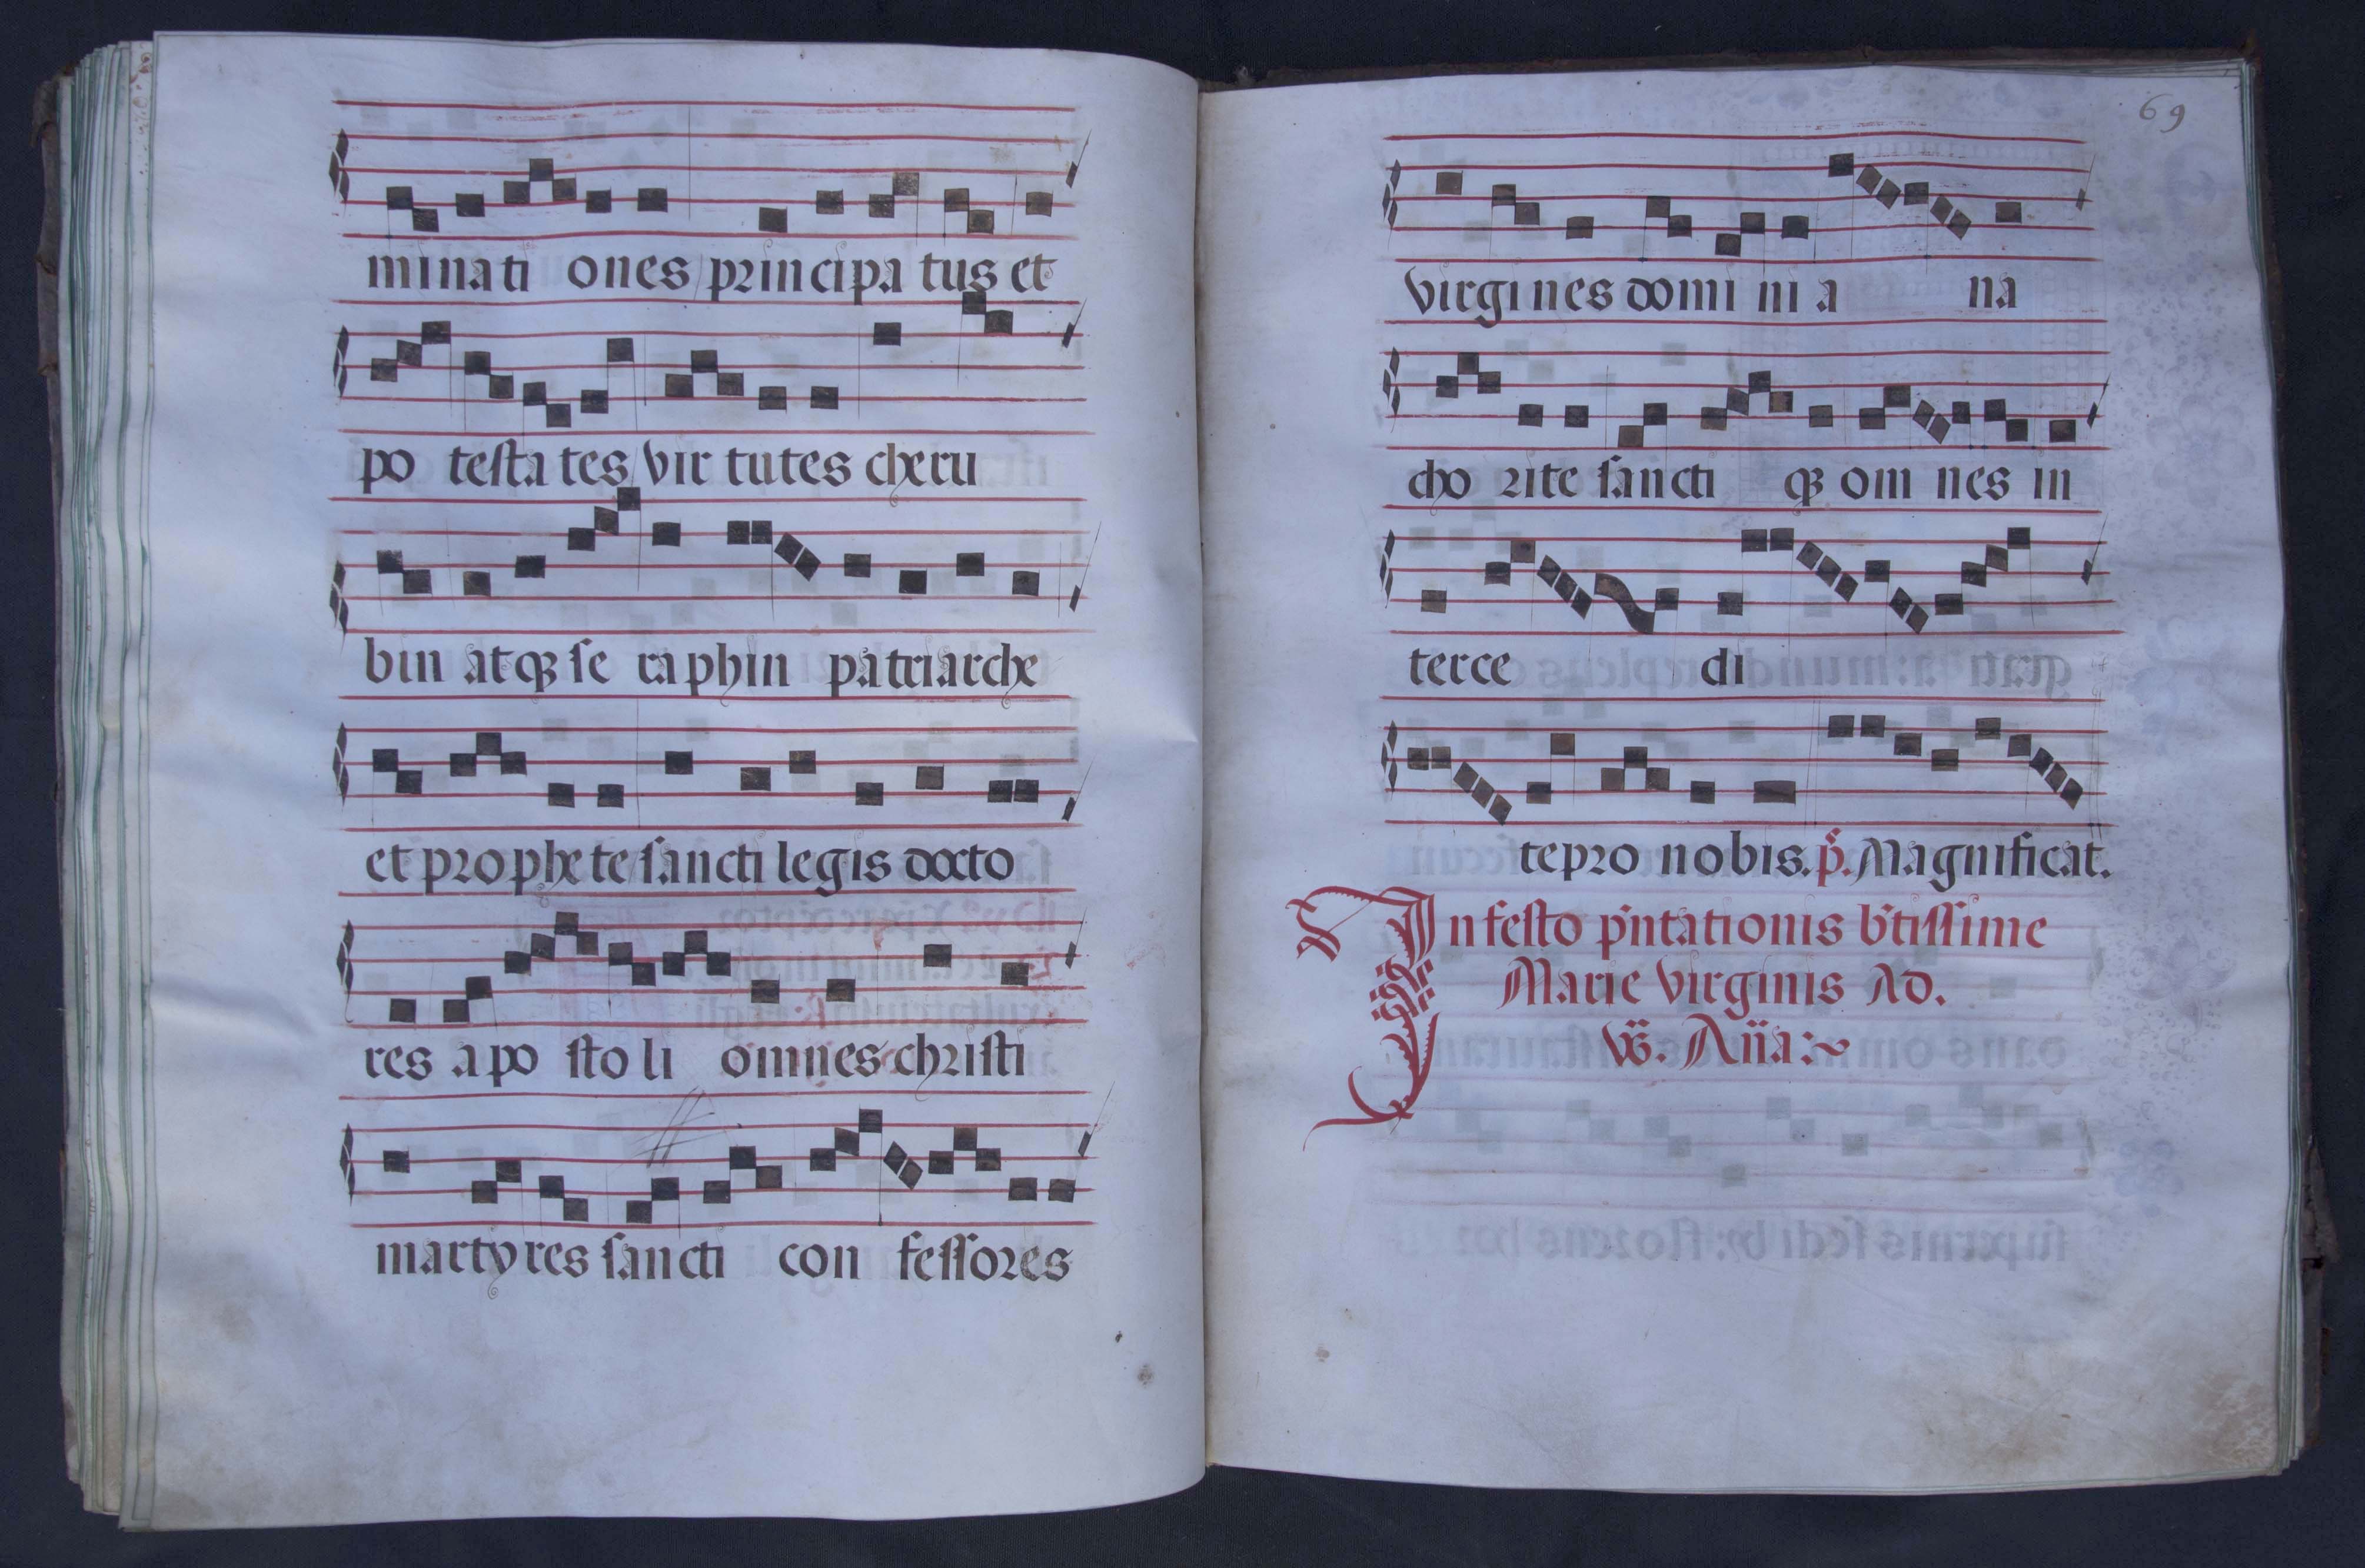 minati ones principa tus et
po testa tes virtutes cheru
bin atq se raphin patriarche
et prophete sancti legis docto
res apo sto li omnes christi
martyres sancti con fessores
69
virgines domi ni a na
cho rite sancti q om nes in
terce di
te pro nobis. p. Magnificat.
In festo pntationis btissime
Marie virginis Ad.
Vs. Aña:~